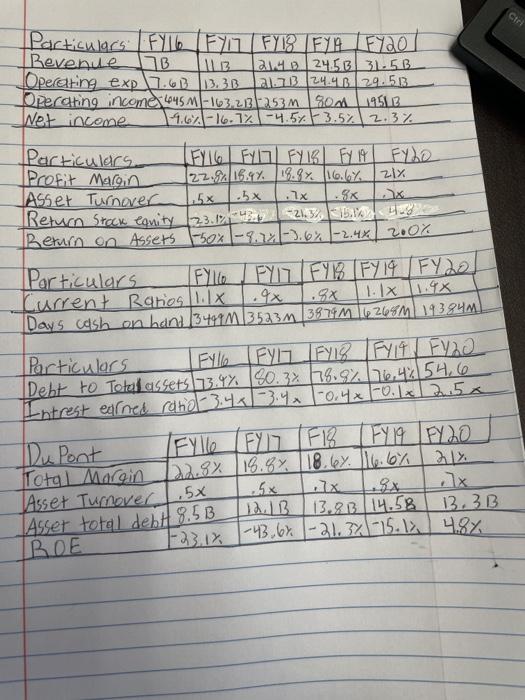 Particulars FY16 FY17 FY18 FY19 FY20
Revenue 7B 11B 21.4B 24.5B 31.5B
Operating exp 7.6B 13.3B 21.7B 24.4B 29.5B
Operating income 645M -163.2B -253M 80M 1951B
Net income -9.6% -16.7% -4.5% -3.5% 2.3%
Particulars FY16 FY17 FY18 FY19 FY20
Profit Margin 22.8% 18.9% 18.8% 16.6% 21%
Asset Turnover .5x .5x .7x .8x .7x
Return Stock equity 23.1% -43.6 -21.3% -15.1% 4.8
Return on Assets -50% -8.7% -3.6% -2.4% 2.0%
Particulars FY16 FY17 FY18 FY19 FY20
Current Ratios 1.1x .9x .8x 1.1x 1.9x
Days cash on hand 3499M 3523M 3879M 6268M 19384M
Particulars FY16 FY17 FY18 FY19 FY20
Debt to Total assets 73.9% 80.3% 78.8% 76.4% 54.6
Intrest earned ratio -3.4x -3.4x -0.4x -0.1x 2.5x
Du Pont FY16 FY17 F18 FY19 FY20
Total Margin 22.8% 18.8% 18.6% 16.6% 21%
Asset Turnover .5x .5x .7x .8x .7x
Asset total debt 8.5B 12.1B 13.8B 14.5B 13.3B
ROE -23.1% -43.6% -21.3% -15.1% 4.8%
Ctrl